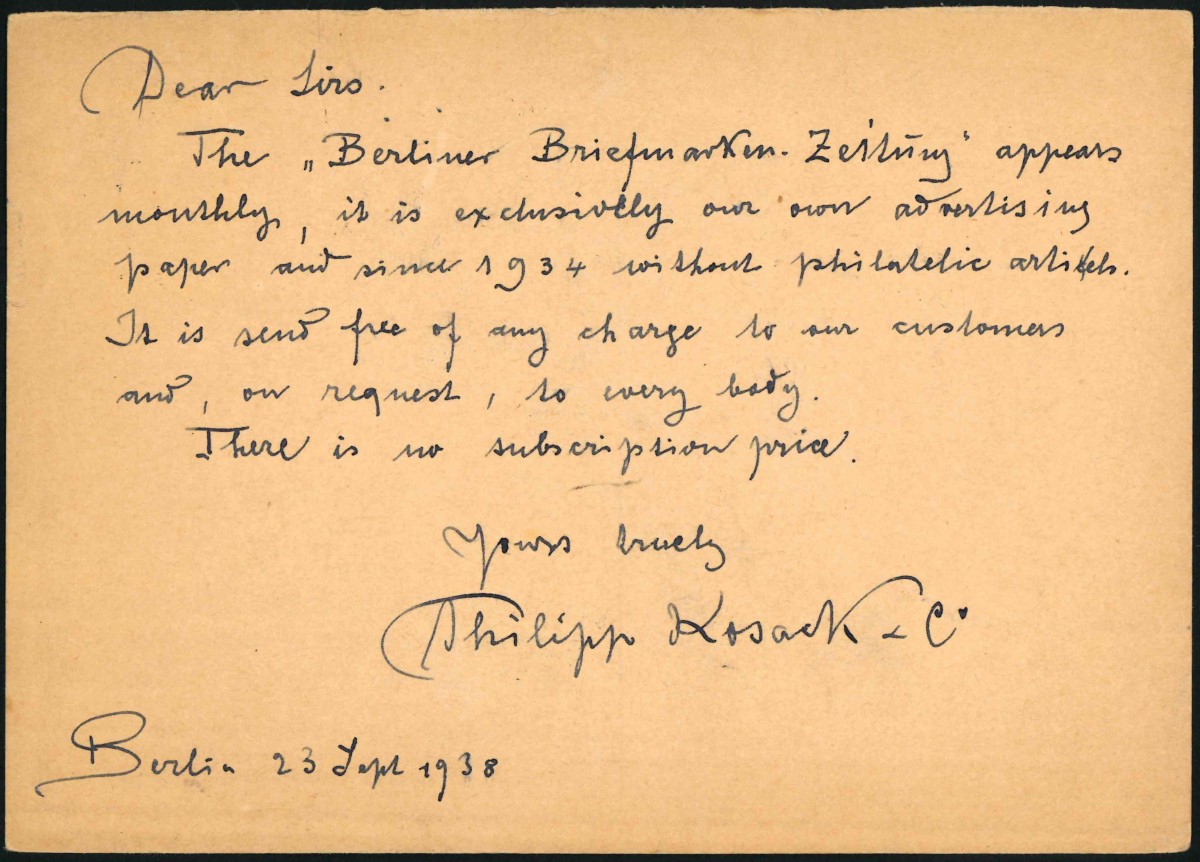 Dear Sirs.
The „Berliner Briefmarken-Zeitung" appears
monthly, it is exclusively our own advertising
paper and since 1934 without philatelic articls.
It is send free of any charge to our customers
and, on request, to every body.
There is no subscription price.
Yours truely
Philipp Kosack & Co
Berlin 23 Sept 1938